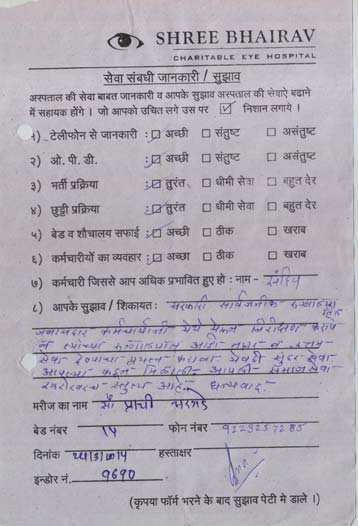 SHREE BHAIRAV
CHARITABLE EYE HOSPITAL
सेवा संबधी जानकारी / सुझाव
अस्पताल की सेवा बाबत जानकारी व आपके सुझाव अस्पताल की सेवाऐ बढाने
में सहायक होंगे । जो आपको उचित लगे उस पर ☑ निशान लगाये ।
१) टेलीफोन से जानकारी : ☑ अच्छी ☐ संतुष्ट ☐ असंतुष्ट
२) ओ. पी. डी. : ☑ अच्छी ☐ संतुष्ट ☐ असंतुष्ट
३) भर्ती प्रक्रिया : ☑ तुरंत ☐ धीमी सेवा ☐ बहुत देर
४) छुट्टी प्रक्रिया : ☑ तुरंत ☐ धीमी सेवा ☐ बहुत देर
५) बेड व शौचालय सफाई : ☑ अच्छी ☐ ठीक ☐ खराब
६) कर्मचारीयों का व्यवहार : ☑ अच्छा ☐ ठीक ☐ खराब
७) कर्मचारी जिससे आप अधिक प्रभावित हुए हो : नाम - संदिप
८) आपके सुझाव / शिकायत : सरकारी सार्वजनिक
जबाबदार कर्मचार्यांनी येथे येऊन निरीक्षण करावे
व त्यांच्या रुग्णालयात अशी तत्पर व उत्तम
सेवा देण्याचा प्रयत्न करावा एवढी सुंदर सेवा
मिळाली आपली समाजसेवा
खरोखरच स्तुत्य आहे. धन्यवाद.
मरीज का नाम सौ प्राची
बेड नंबर 14 फोन नंबर 9223257285
दिनांक हस्ताक्षर
इन्डोर नं. 9690
(कृपया फॉर्म भरने के बाद सुझाव पेटी मे डाले ।)